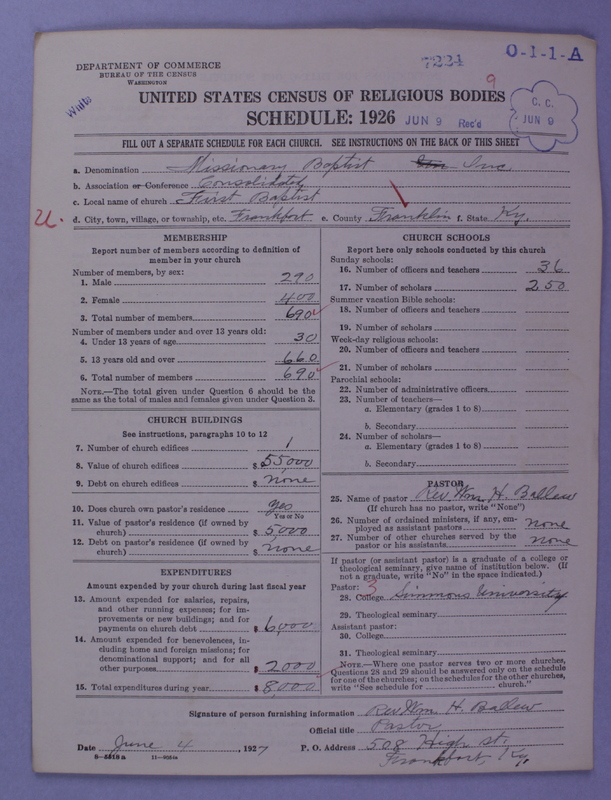 DEPARTMENT OF COMMERCE
BUREAU OF THE CENSUS
WASHINGTON
7224
O-I-1-A
9
White
UNITED STATES CENSUS OF RELIGIOUS BODIES
SCHEDULE: 1926
JUN 9 Rec'd
C. C.
JUN 9
FILL OUT A SEPARATE SCHEDULE FOR EACH CHURCH. SEE INSTRUCTIONS ON THE BACK OF THIS SHEET
a. Denomination Missionary Baptist Inc
b. Association or Conference Consolidated
c. Local name of church First Baptist
U. d. City, town, village, or township, etc. Frankfort e. County Franklin f. State Ky.
MEMBERSHIP
Report number of members according to definition of
member in your church
Number of members, by sex:
1. Male 290
2. Female 400
3. Total number of members 690
Number of members under and over 13 years old:
4. Under 13 years of age 30
5. 13 years old and over 660
6. Total number of members 690
NOTE.—The total given under Question 6 should be the
same as the total of males and females given under Question 3.
CHURCH BUILDINGS
See instructions, paragraphs 10 to 12
7. Number of church edifices 1
8. Value of church edifices $ 55,000
9. Debt on church edifices $ none
10. Does church own pastor's residence yes
Yes or No
11. Value of pastor's residence (if owned by
church) $ 5,000
12. Debt on pastor's residence (if owned by
church) $ none
EXPENDITURES
Amount expended by your church during last fiscal year
13. Amount expended for salaries, repairs,
and other running expenses; for im-
provements or new buildings; and for
payments on church debt $ 6,000
14. Amount expended for benevolences, in-
cluding home and foreign missions; for
denominational support; and for all
other purposes $ 2000
15. Total expenditures during year $ 8,000
CHURCH SCHOOLS
Report here only schools conducted by this church
Sunday schools:
16. Number of officers and teachers 36
17. Number of scholars 250
Summer vacation Bible schools:
18. Number of officers and teachers
19. Number of scholars
Week-day religious schools:
20. Number of officers and teachers
21. Number of scholars
Parochial schools:
22. Number of administrative officers
23. Number of teachers—
a. Elementary (grades 1 to 8)
b. Secondary
24. Number of scholars—
a. Elementary (grades 1 to 8)
b. Secondary
PASTOR
25. Name of pastor Rev Wm. H. Ballew
(If church has no pastor, write "None")
26. Number of ordained ministers, if any, em-
ployed as assistant pastors none
27. Number of other churches served by the
pastor or his assistants none
If pastor (or assistant pastor) is a graduate of a college or
theological seminary, give name of institution below. (If
not a graduate, write "No" in the space indicated.)
Pastor: 3
28. College Simmons University
29. Theological seminary
Assistant pastor:
30. College
31. Theological seminary
NOTE.—Where one pastor serves two or more churches,
Questions 28 and 29 should be answered only on the schedule
for one of the churches; on the schedules for the other churches,
write "See schedule for church."
Signature of person furnishing information Rev Wm H. Ballew
Official title Pastor
Date June 4, 1927 P. O. Address 508 High st.
8-5518a 11-9051a Frankfort, Ky.